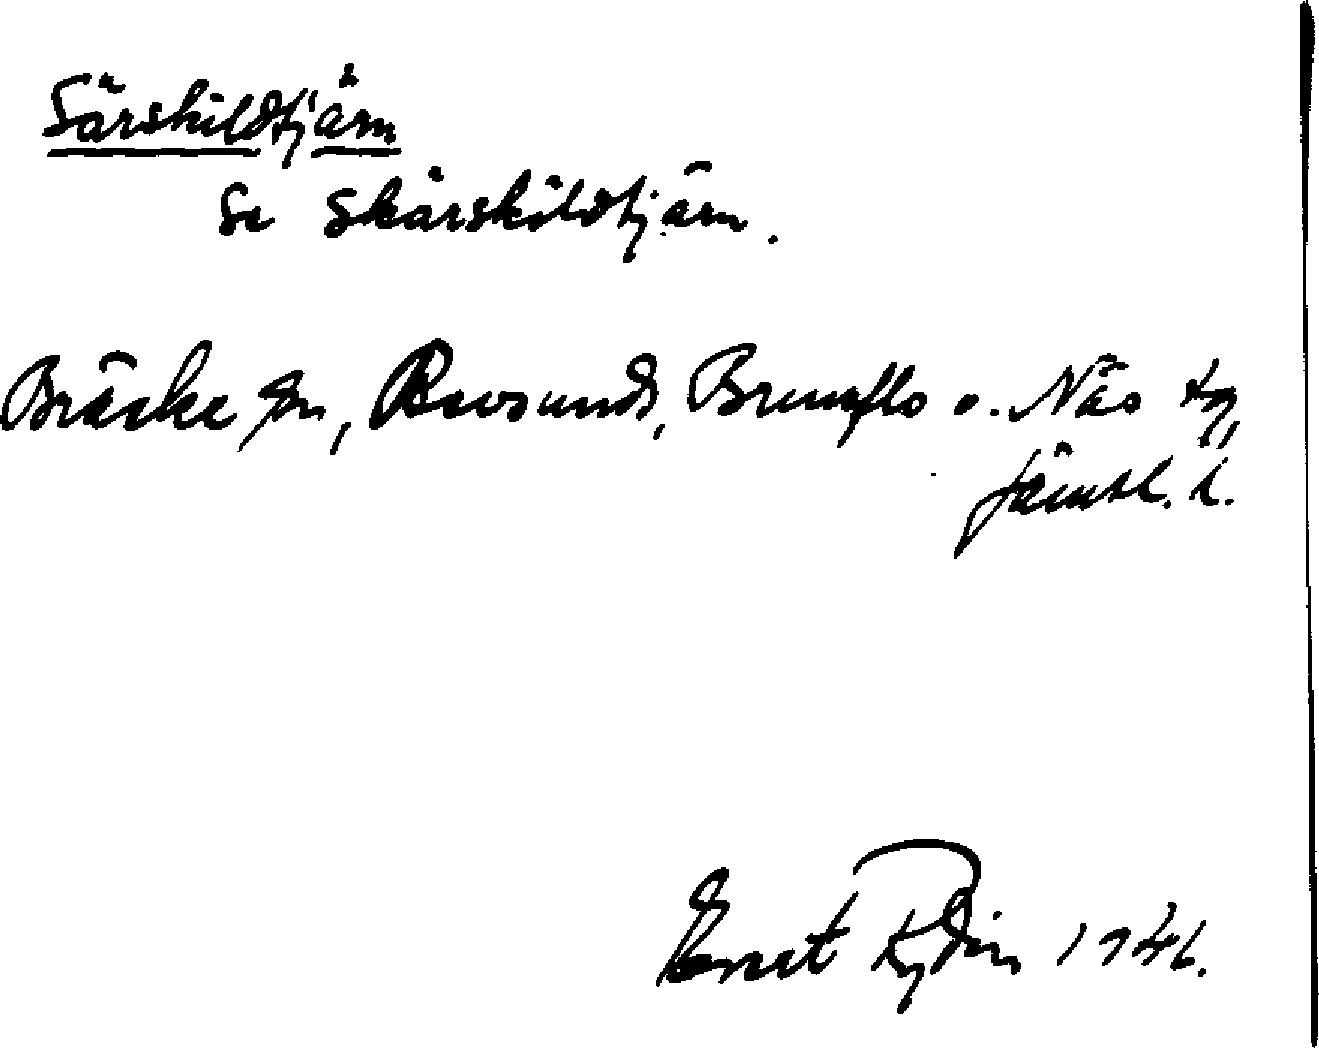 Särskildtjärn
Se Skärskildtjärn.
Bräcke sn, Revsunds, Brunflo o. Näs tg,
Jämtl. l.
Ernst Rydin 1946.